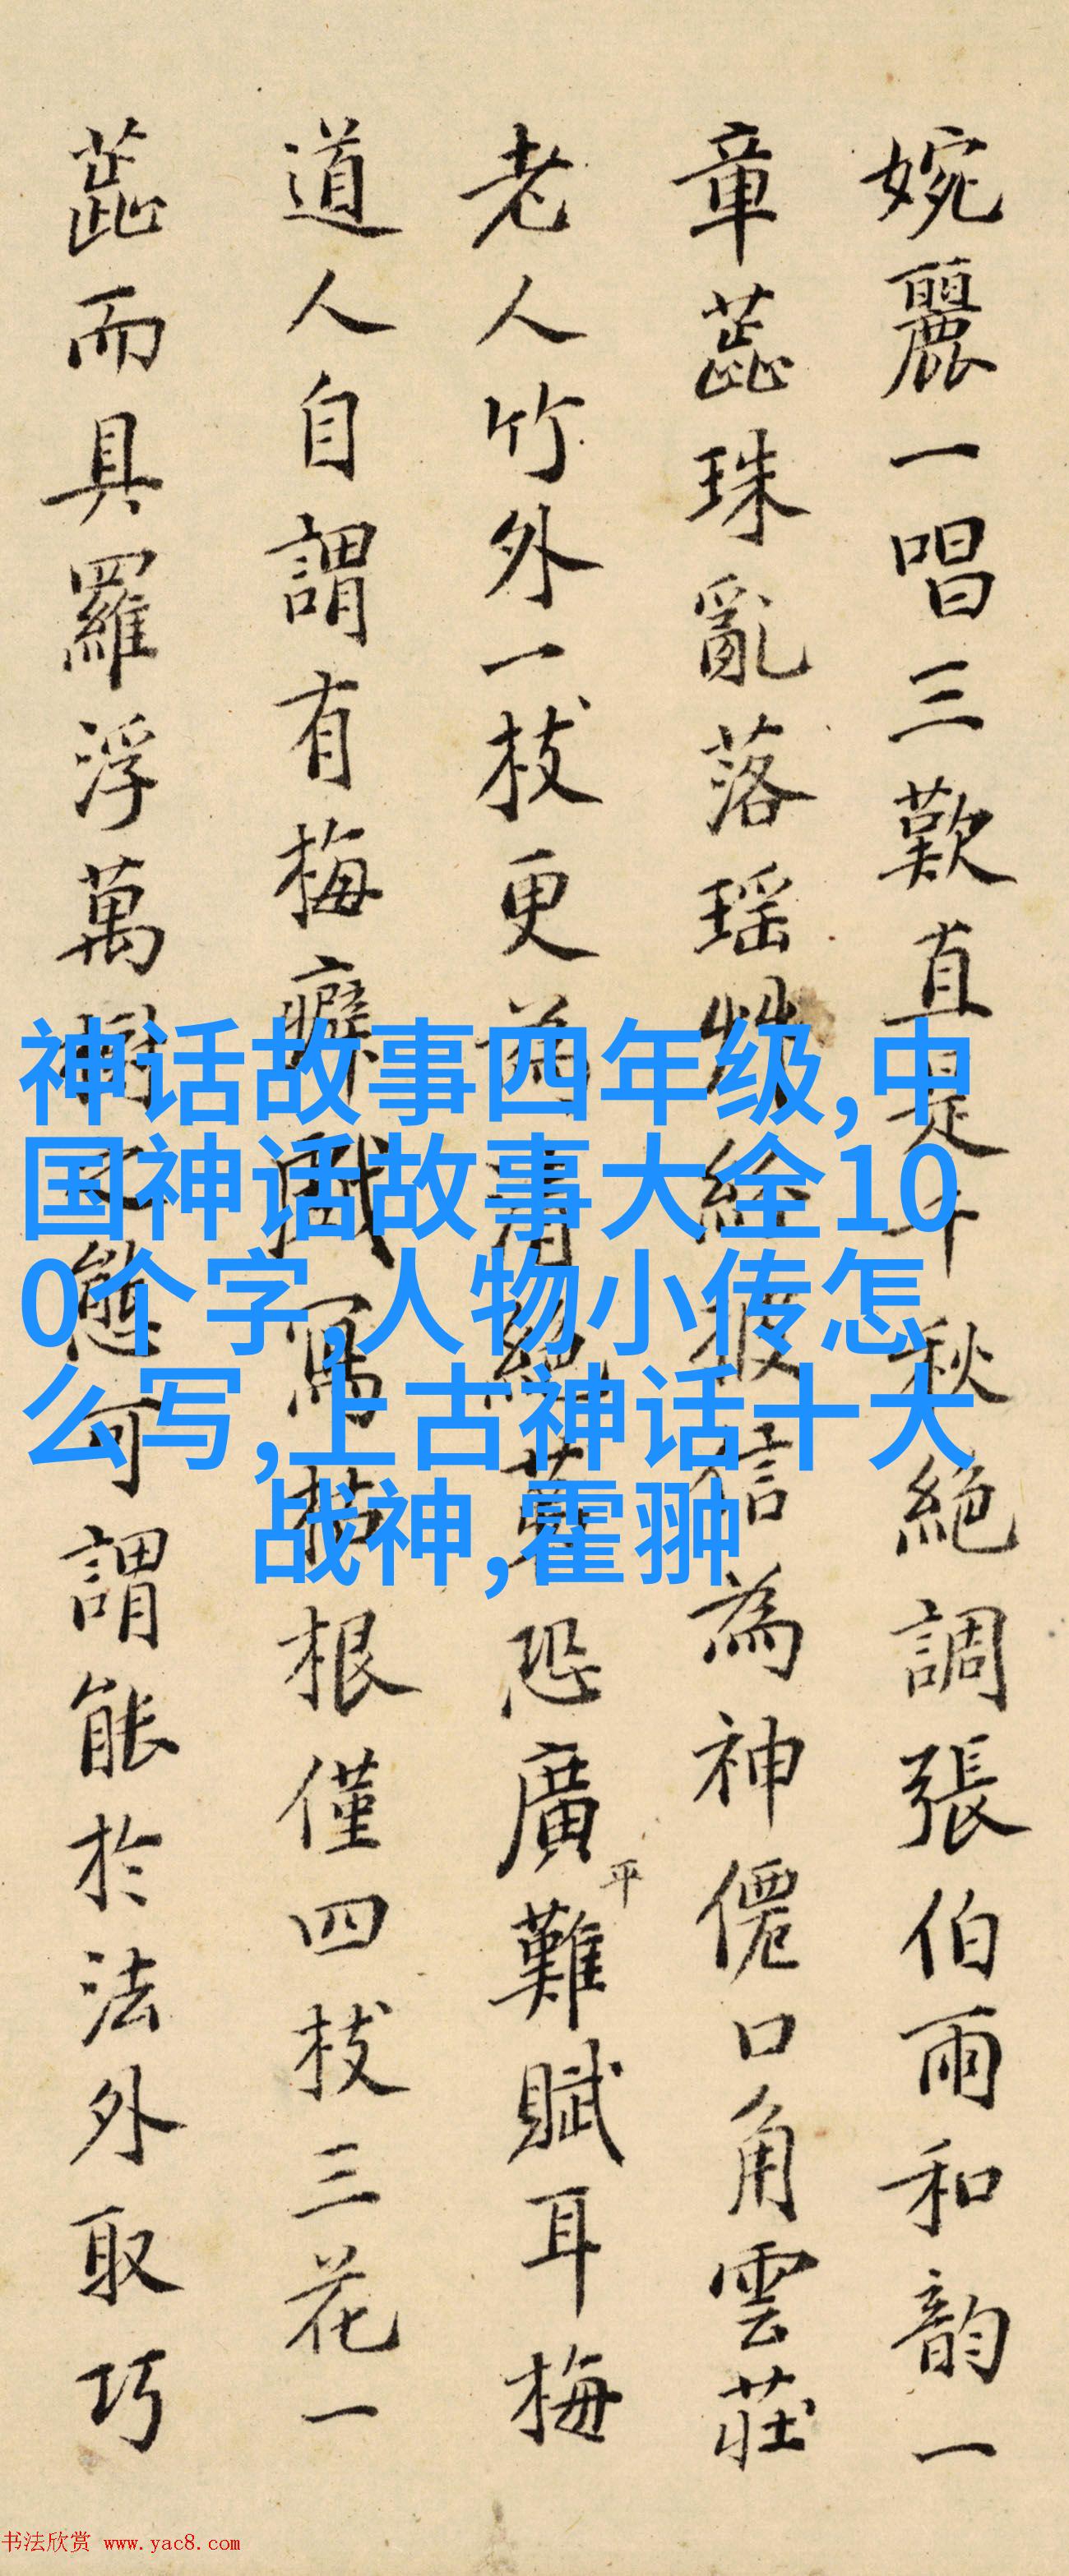 婉麗一唱三歎直是千秋絕調張伯雨和韵一
章蕋珠亂落瑶 經 信為神僊口角雲莊
老人竹外一枝更為 恐廣平難賦耳梅
道人自謂有梅癖戲寫 根僅四枝三花一
蕋而具羅浮萬樹 態可謂能於法外取巧
神话故事四年级,中
国神话故事大全10
0个字,人物小传怎
么写,上古神话十大
战神,霍翀
书法欣赏 www.yac8.com